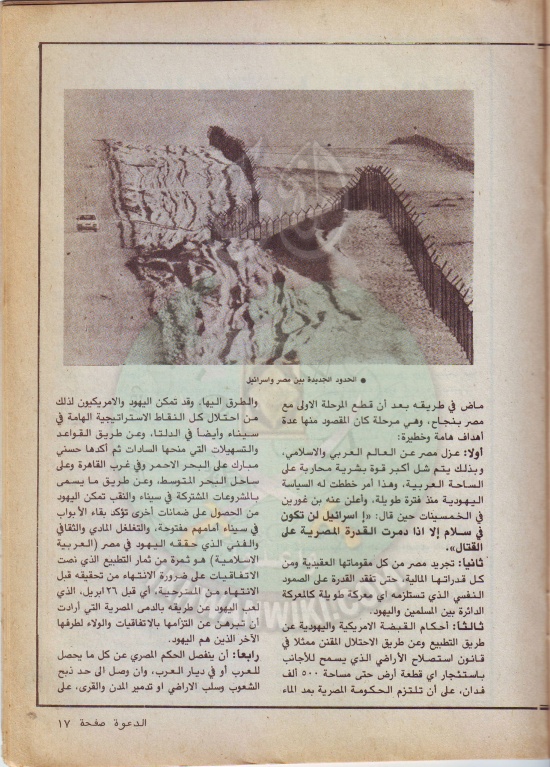 ● الحدود الجديدة بين مصر واسرائيل
ماض في طريقه بعد أن قطع المرحلة الاولى مع
مصر بنجاح، وهي مرحلة كان المقصود منها عدة
أهداف هامة وخطيرة:
أولا: عزل مصر عن العالم العربي والاسلامي،
وبذلك يتم شل أكبر قوة بشرية محاربة على
الساحة العربية، وهذا أمر خططت له السياسة
اليهودية منذ فترة طويلة، وأعلن عنه بن غورين
في الخمسينات حين قال: «إ اسرائيل لن تكون
في سلام إلا اذا دمرت القدرة المصرية على
القتال».
ثانيا: تجريد مصر من كل مقوماتها العقيدية ومن
كل قدراتها المالية، حتى تفقد القدرة على الصمود
النفسي الذي تستلزمه أي معركة طويلة كالمعركة
الدائرة بين المسلمين واليهود.
ثالثا: أحكام القبضة الامريكية واليهودية عن
طريق التطبيع وعن طريق الاحتلال المقنن ممثلا في
قانون استصلاح الأراضي الذي يسمح للأجانب
باستئجار اي قطعة أرض حتى مساحة ٥٠٠ ألف
فدان، على أن تلتزم الحكومة المصرية بمد الماء
والطرق اليها. وقد تمكن اليهود والامريكيون لذلك
من احتلال كل النقاط الاستراتيجية الهامة في
سيناء وأيضاً في الدلتا، وعن طريق القواعد
والتسهيلات التي منحها السادات ثم أكدها حسني
مبارك على البحر الاحمر وفي غرب القاهرة وعلى
ساحل البحر المتوسط، وعن طريق ما يسمى
بالمشروعات المشتركة في سيناء والنقب تمكن اليهود
من الحصول على ضمانات أخرى تؤكد بقاء الأبواب
في سيناء أمامهم مفتوحة، والتغلغل المادي والثقافي
والفني الذي حققه اليهود في مصر (العربية
الاسلامية) هو ثمرة من ثمار التطبيع الذي نصت
الاتفاقيات على ضرورة الانتهاء من تحقيقه قبل
الانتهاء من المسرحية، أي قبل ٢٦ ابريل، الذي
لعب اليهود عن طريقه بالدمى المصرية التي أرادت
أن تبرهن عن التزامها بالاتفاقيات والولاء لطرفها
الآخر الذين هم اليهود.
رابعا: أن ينفصل الحكم المصري عن كل ما يحصل
للعرب أو في ديار العرب، وان وصل الى حد ذبح
الشعوب وسلب الاراضي او تدمير المدن والقرى، على
الدعوة صفحة ١٧